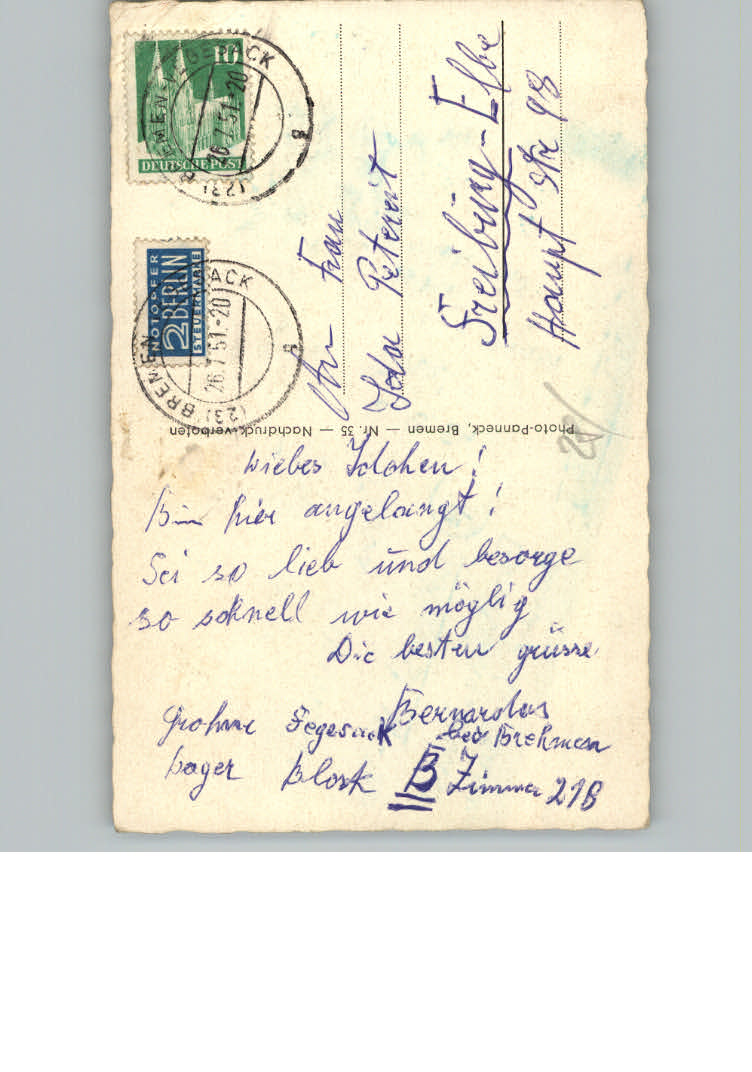 10
DEUTSCHE POST
(23) BREMEN-VEGESACK
26.7.51.-20
a
NOTOPFER
2 BERLIN
STEUERMARKE
(23) BREMEN
26.7.51.-20
a
An Frau
Ida Petereit
Freiburg-Elbe
Haupt Str 98
Photo-Panneck, Bremen — Nr. 35 — Nachdruck verboten
Liebes Idchen!
Bin hier angelangt!
Sei so lieb und besorge
so schnell wie möglig
Die besten grüsse
Bernardas
Grohne Fegesack bei Brehmen
Lager Block B Zimmer 21B